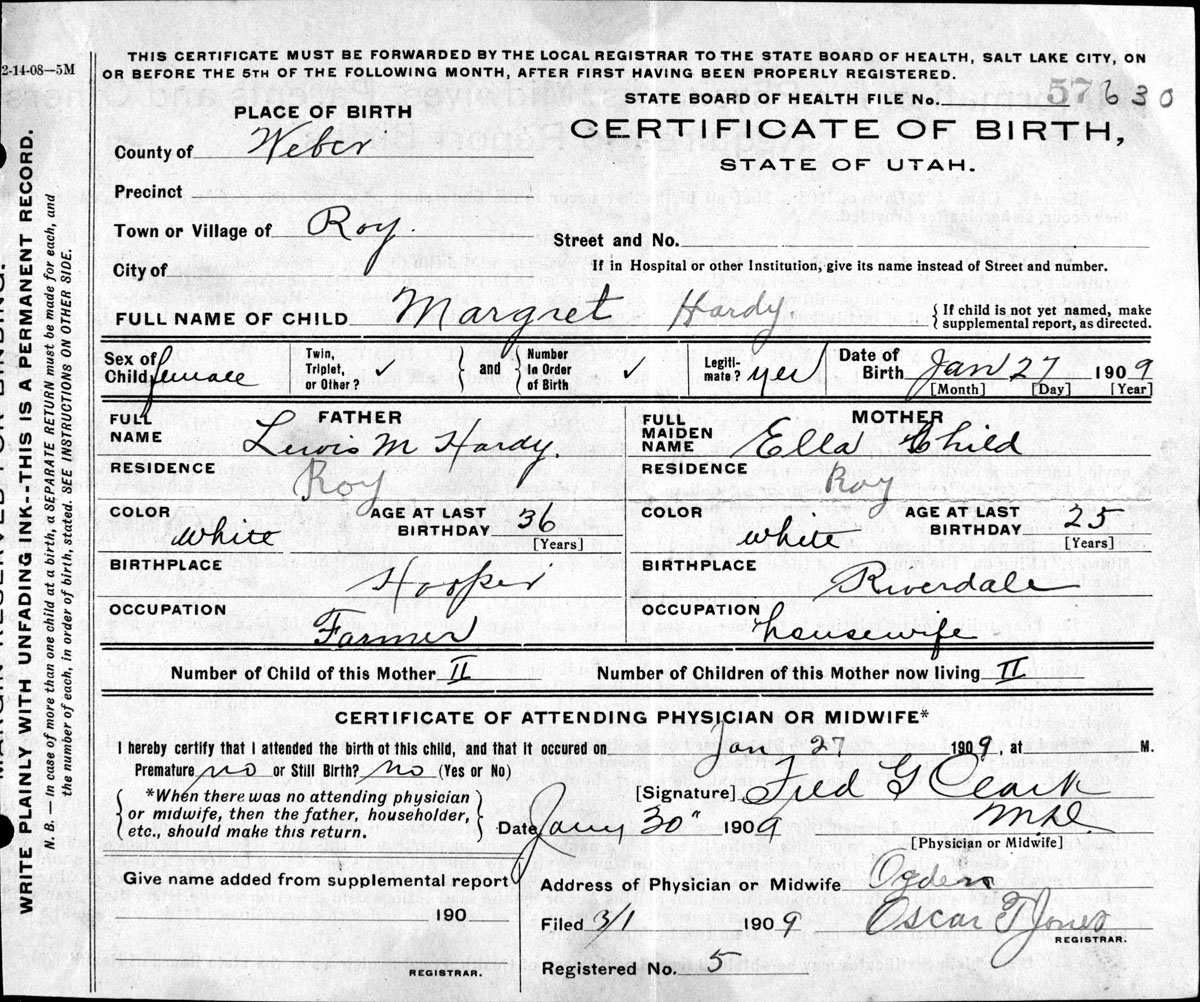 THIS CERTIFICATE MUST BE FORWARDED BY THE LOCAL REGISTRAR TO THE STATE BOARD OF HEALTH, SALT LAKE CITY, ON
OR BEFORE THE 5TH OF THE FOLLOWING MONTH, AFTER FIRST HAVING BEEN PROPERLY REGISTERED.
2-14-08—5M
STATE BOARD OF HEALTH FILE No. 57630
PLACE OF BIRTH
CERTIFICATE OF BIRTH,
STATE OF UTAH.
County of Weber
Precinct
Town or Village of Roy.
Street and No.
City of
If in Hospital or other Institution, give its name instead of Street and number.
FULL NAME OF CHILD Margret Hardy.
{ If child is not yet named, make
supplemental report, as directed.
Sex of Child female
Twin, Triplet, or Other? ✓
} and { Number In Order of Birth ✓
Legiti-mate? yes
Date of Birth Jan 27 1909
[Month] [Day] [Year]
FATHER
FULL NAME Lewis M Hardy.
RESIDENCE Roy
COLOR white
AGE AT LAST BIRTHDAY 36
[Years]
BIRTHPLACE Hooper
OCCUPATION Farmer
MOTHER
FULL MAIDEN NAME Ella Child
RESIDENCE Roy
COLOR white
AGE AT LAST BIRTHDAY 25
[Years]
BIRTHPLACE Riverdale
OCCUPATION housewife
Number of Child of this Mother II
Number of Children of this Mother now living II
CERTIFICATE OF ATTENDING PHYSICIAN OR MIDWIFE*
I hereby certify that I attended the birth of this child, and that it occured on Jan 27 1909, at M.
Premature no or Still Birth? no (Yes or No)
{ *When there was no attending physician
or midwife, then the father, householder,
etc., should make this return. }
[Signature] Fred G Clark
M.D.
[Physician or Midwife]
Date Jany 30" 1909
Give name added from supplemental report
190
REGISTRAR.
Address of Physician or Midwife Ogden
Filed 3/1 1909 Oscar T Jones
REGISTRAR.
Registered No. 5
WRITE PLAINLY WITH UNFADING INK--THIS IS A PERMANENT RECORD.
N. B. — In case of more than one child at a birth, a SEPARATE RETURN must be made for each, and
the number of each, in order of birth, stated. SEE INSTRUCTIONS ON OTHER SIDE.